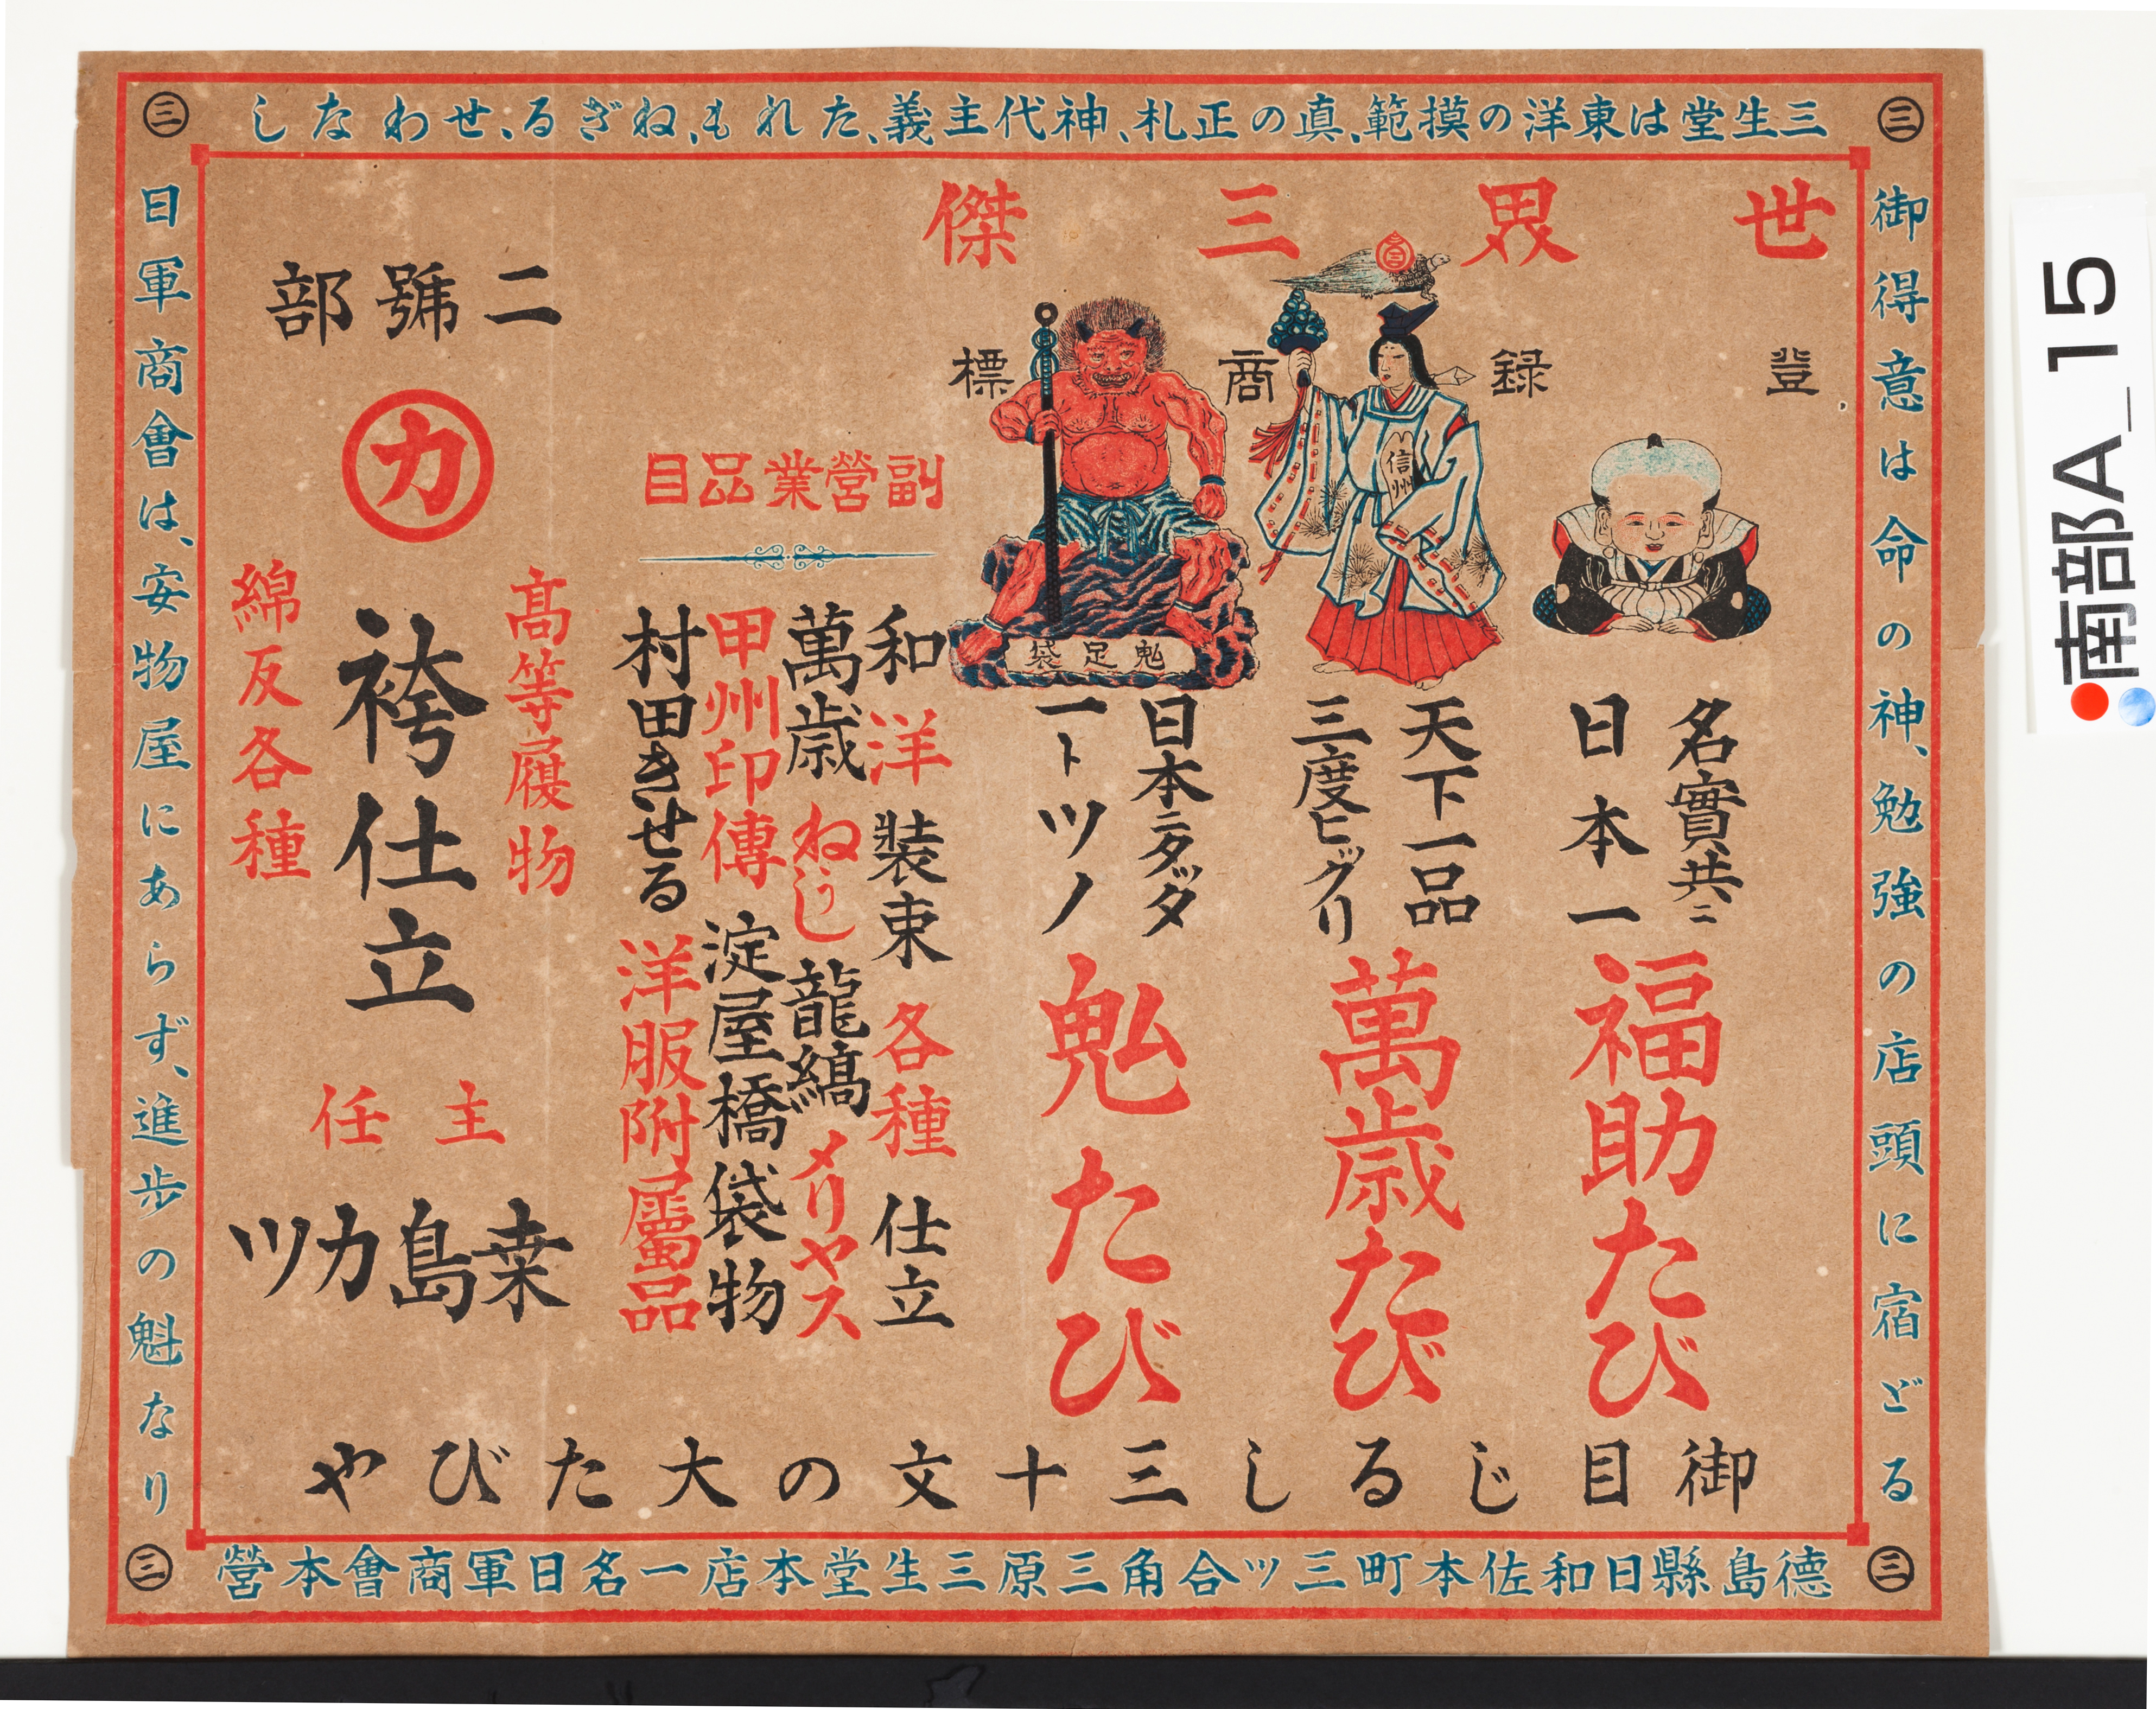 三生堂は東洋の摸範、真の正札、神代主義、たれもね、ねぎる、せわなし
御得意は命の神、勉強の店頭に宿どる
世界三傑
登録商標
信州
鬼足袋
名實共ニ
日本一
福助たび
天下一品
三度ビックリ
萬歳たび
日本ニタッタ
一トツノ
鬼たび
副營業品目
和洋装束各種仕立
萬歳ねぢし龍縞メリヤス
甲州印傳淀屋橋袋物
村田きせる洋服附屬品
二號部
カ
高等履物
袴仕立
綿反各種
主任
桒島カツ
御目じるし三十文の大たびや
日軍商會は、安物屋にあらず、進歩の魁なり
德島縣日和佐本町三ッ合角三原三生堂本店一名日軍商會本營
三
三
三
三
南部A_15